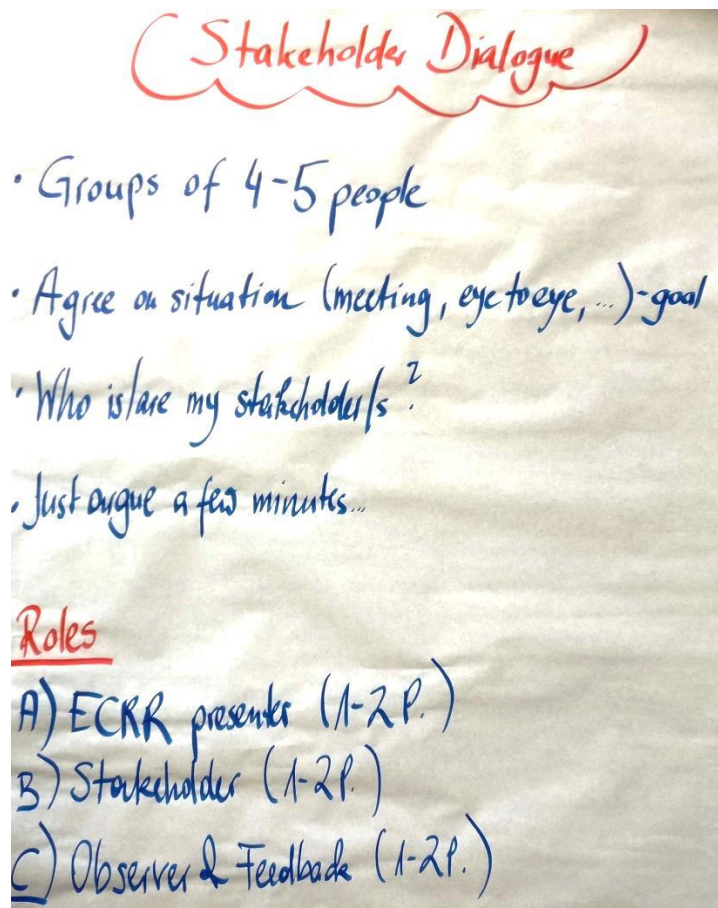 Stakeholder Dialogue
· Groups of 4-5 people
· Agree on situation (meeting, eye to eye, ...)-goal
· Who is/are my stakeholder/s?
· Just argue a few minutes...
Roles
A) ECRR presenter (1-2 P.)
B) Stakeholder (1-2P.)
C) Observer & Feedback (1-2P.)